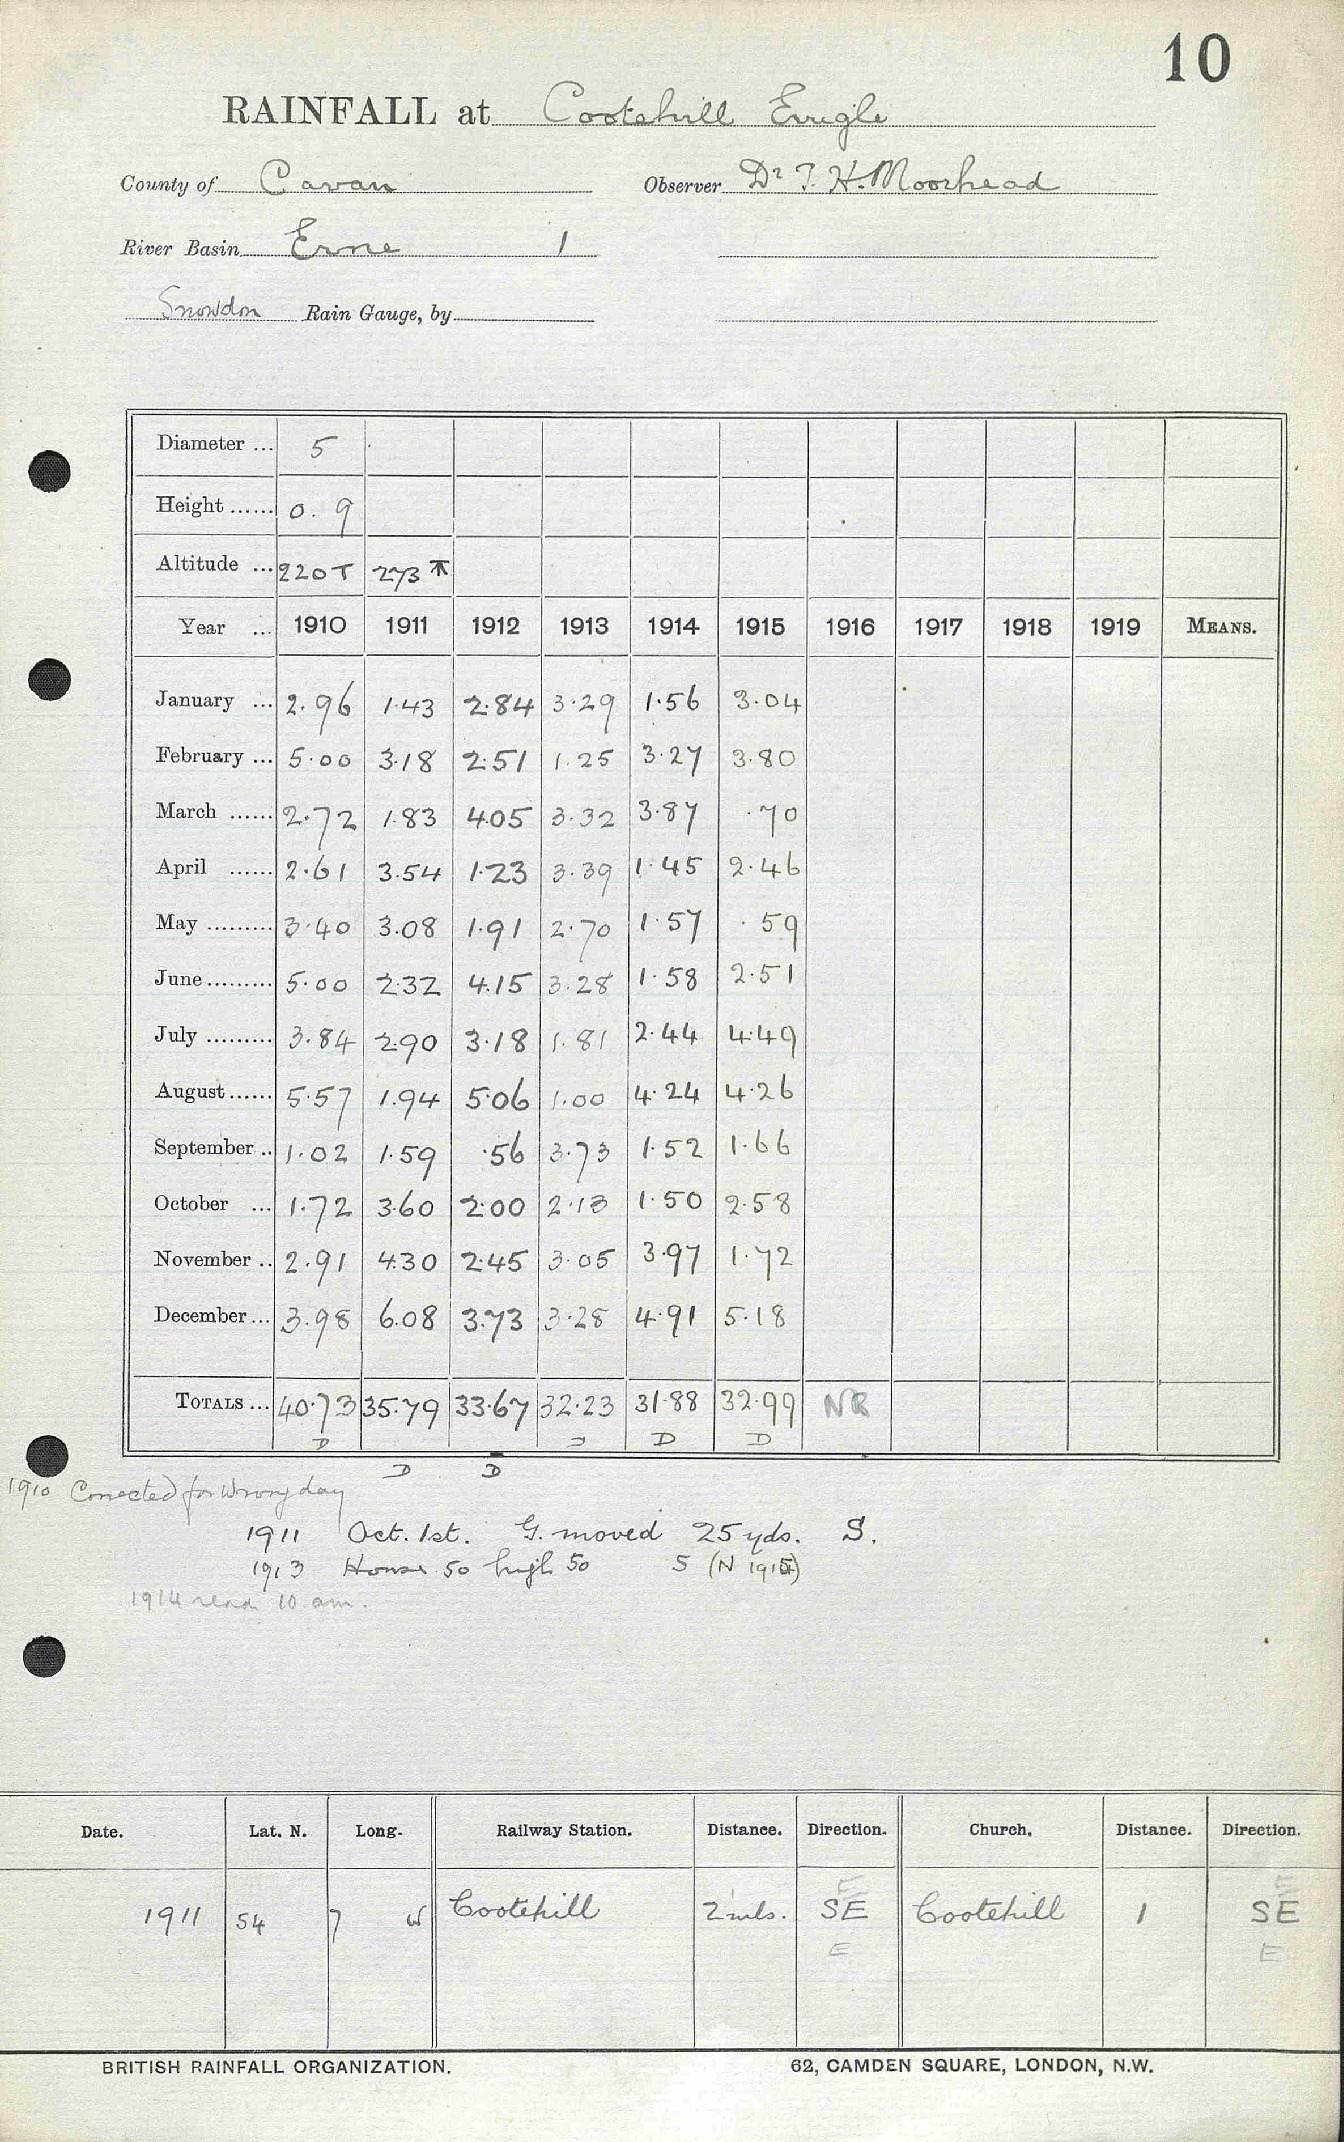 10
RAINFALL at Cootehill Errigle
County of Cavan Observer Dr T. H. Moorhead
River Basin Erne 1
Snowdon Rain Gauge, by
Diameter ... 5
Height ...... 0.9
Altitude ... 220 T 273
Year ... 1910 1911 1912 1913 1914 1915 1916 1917 1918 1919 MEANS.
January ... 2.96 1.43 2.84 3.29 1.56 3.04
February ... 5.00 3.18 2.51 1.25 3.27 3.80
March ...... 2.72 1.83 4.05 3.32 3.87 .70
April ...... 2.61 3.54 1.23 3.39 1.45 2.46
May ......... 3.40 3.08 1.91 2.70 1.57 .59
June ......... 5.00 2.32 4.15 3.28 1.58 2.51
July ......... 3.84 2.90 3.18 1.81 2.44 4.49
August ...... 5.57 1.94 5.06 1.00 4.24 4.26
September .. 1.02 1.59 .56 3.73 1.52 1.66
October ... 1.72 3.60 2.00 2.13 1.50 2.58
November .. 2.91 4.30 2.45 3.05 3.97 1.72
December ... 3.98 6.08 3.73 3.28 4.91 5.18
TOTALS ... 40.73 35.79 33.67 32.23 31.88 32.99 NR
D D D D
D D
1910 Corrected for wrong day
1911 Oct. 1st. G. moved 25 yds. S.
1913 House 50 high 50 S (N 1915)
1914 read 10 am.
Date. Lat. N. Long. Railway Station. Distance. Direction. Church. Distance. Direction.
E E
1911 54 7 W Cootehill 2 mls. SE Cootehill 1 SE
E E
BRITISH RAINFALL ORGANIZATION. 62, CAMDEN SQUARE, LONDON, N.W.